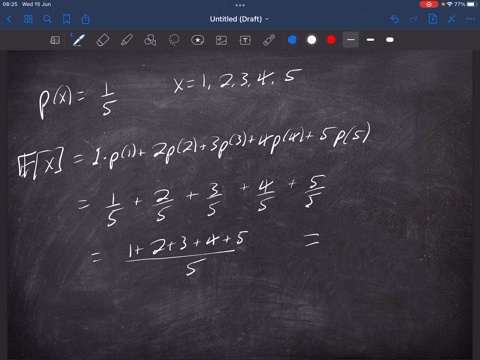 08:25 Wed 15 Jun
77%
Untitled (Draft)
p(x) = 1/5 x = 1, 2, 3, 4, 5
E[X] = 1·p(1) + 2p(2) + 3p(3) + 4p(4) + 5p(5)
= 1/5 + 2/5 + 3/5 + 4/5 + 5/5
= (1+2+3+4+5)/5 =